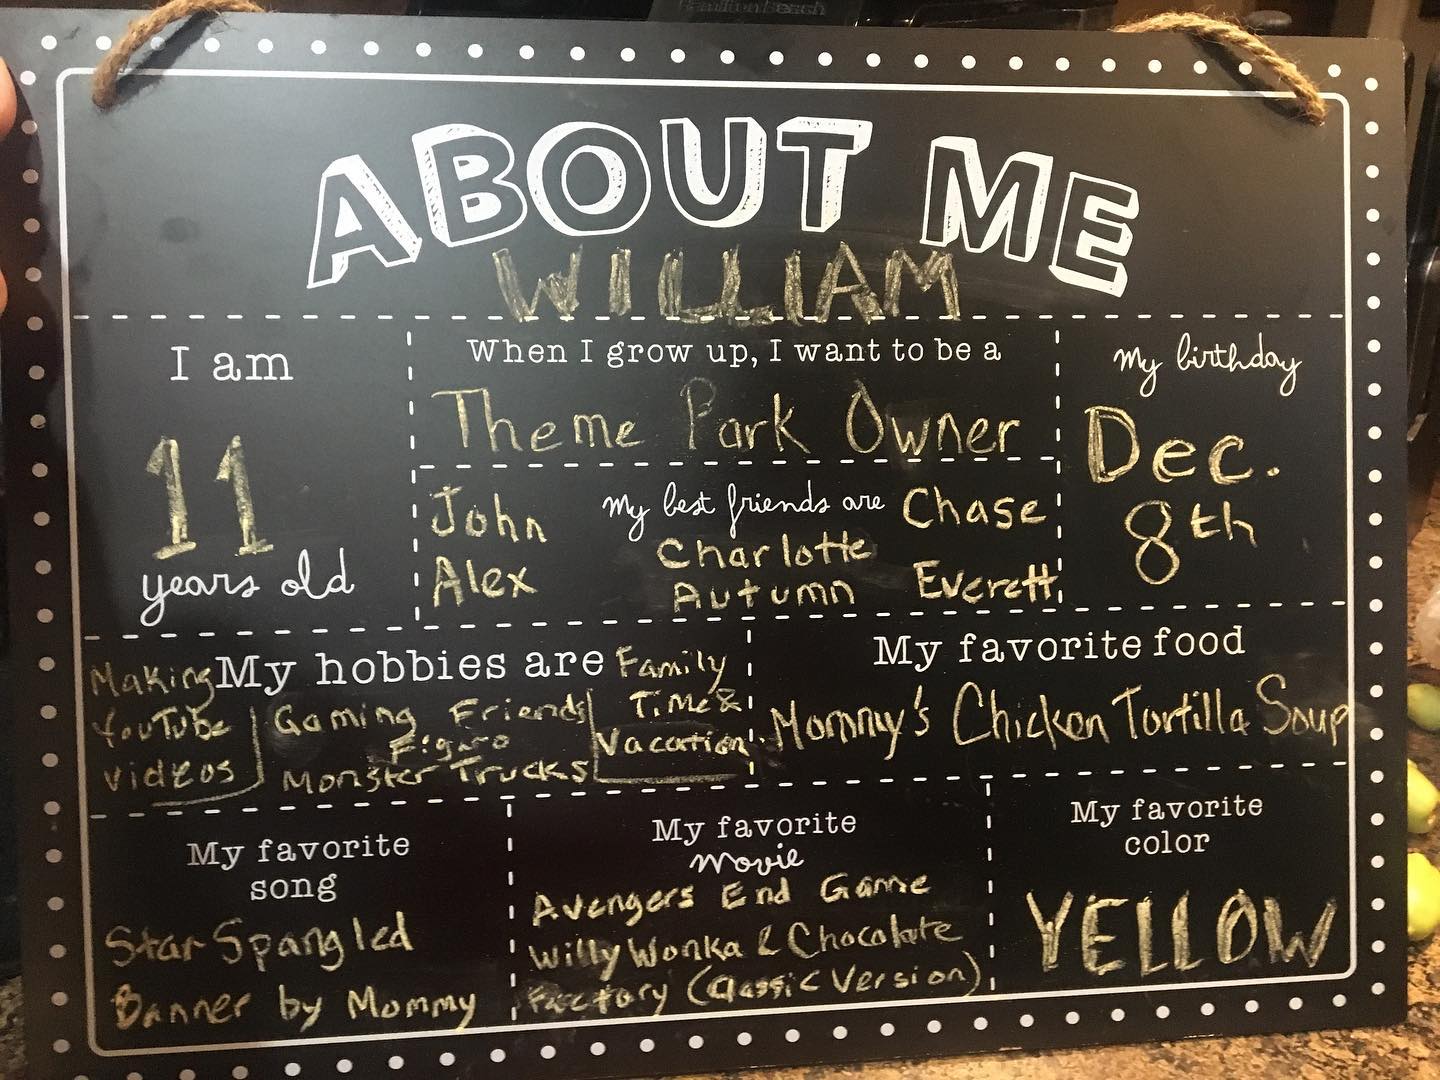 Hamilton Beach
ABOUT ME
WILLIAM
I am
11
years old
When I grow up, I want to be a
Theme Park Owner
My birthday
Dec.
8th
My best friends are
John
Alex
Charlotte
Autumn
Chase
Everett
My hobbies are
Making
YouTube
videos
Gaming Friends
Figaro
Monster Trucks
Family
Time &
Vacation
My favorite food
Mommy's Chicken Tortilla Soup
My favorite
song
Star Spangled
Banner by Mommy
My favorite
Movie
Avengers End Game
Willy Wonka & Chocolate
Factory (Classic Version)
My favorite
color
YELLOW